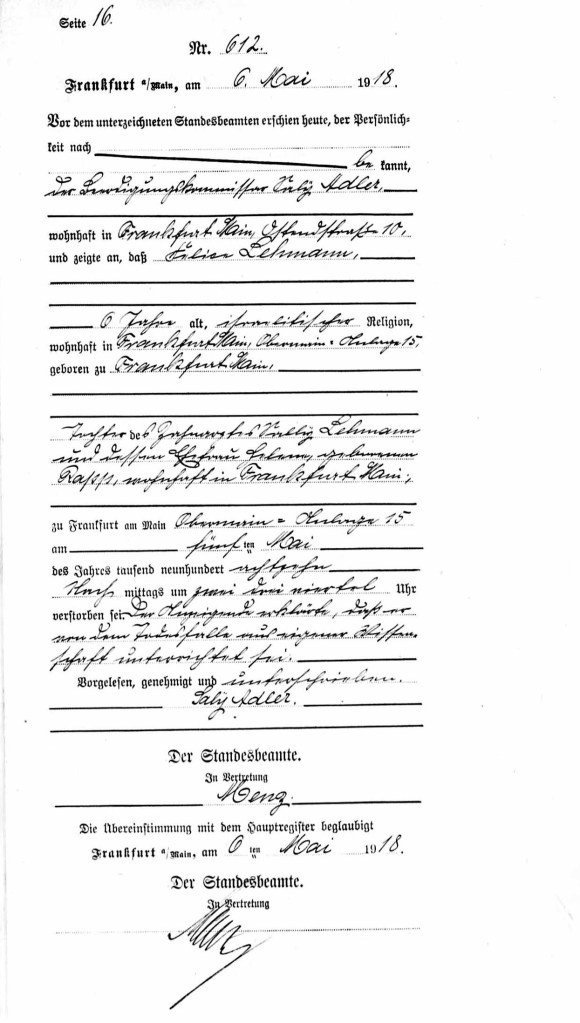 Seite 16.
Nr. 612.
Frankfurt a/Main, am 6. Mai 1918.
Vor dem unterzeichneten Standesbeamten erschien heute, der Persönlich=
keit nach
be kannt,
der Beerdigungskommissar Saly Adler,
wohnhaft in Frankfurt Main, Ostendstraße 10,
und zeigte an, daß Felice Lehmann,
6 Jahre alt, israelitischer Religion,
wohnhaft in Frankfurt Main, Obermain=Anlage 15,
geboren zu Frankfurt Main,
Tochter des Zahnarztes Sally Lehmann
und dessen Ehefrau Helene, geborenen
Rapp, wohnhaft in Frankfurt Main,
zu Frankfurt am Main Obermain=Anlage 15
am fünf ten Mai
des Jahres tausend neunhundert achtzehn
Nach mittags um zwei drei viertel Uhr
verstorben sei. Der Anzeigende erklärte, daß er
von dem Todesfalle aus eigener Wissen=
schaft unterrichtet sei.
Vorgelesen, genehmigt und unterschrieben.
Saly Adler.
Der Standesbeamte.
In Vertretung
Menz.
Die Übereinstimmung mit dem Hauptregister beglaubigt
Frankfurt a/Main, am 6 ten Mai 1918.
Der Standesbeamte.
In Vertretung